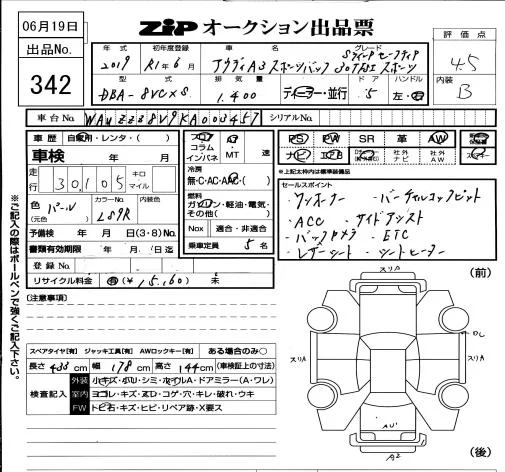 06月19日
ZIP オークション出品票
出品No.
342
評価点
4.5
内装
B
年式 初年度登録 車名 グレード
2019 R1年6月 アウディA3 スポーツバック 30TFSI スポーツ
型式 排気量 ドア ハンドル
DBA-8VCXS 1.400 ディーラー・並行 5 左・右
車台No. WAUZZZ8V9KA003457 シリアルNo.
車歴 自家用・レンタ・( )
車検 年 月
走行 30,105 キロ マイル
色 (元色) パール カラーNo. LS9R 内装色
予備検 年 月 日(3・8)No.
書類有効期限 年 月 日迄
登録No.
リサイクル料金 有(¥15,160) 未
フロア コラム インパネ AT MT 速
冷房 無・C・AC・AAC・( )
燃料 ガソリン・軽油・電気・その他( )
Nox 適合・非適合
乗車定員 5名
PS PW SR 革 AW
ナビ エアB 社外ナビ 社外AW
*上記太枠内は標準装備品
セールスポイント
・ワンオーナー ・バーチャルコックピット
・ACC ・サイドアシスト
・バックカメラ ・ETC
・レザーシート ・シートヒーター
※ご記入の際はボールペンで強くご記入下さい。
[注意事項]
スペアタイヤ[有] ジャッキ工具[有] AWロックキー[有] ある場合のみ○
長さ433cm 幅178cm 高さ144cm(車検証の寸法)
検査記入
外装 小キズ・小U・シミ・ホイルA・ドアミラー(A・ワレ)
室内 ヨゴレ・キズ・スレ・コゲ・穴・キレ・破れ・ウキ
FW トビ石・キズ・ヒビ・リペア跡・X要ス
(前)
スリA
スリA
スリA
A2
(後)